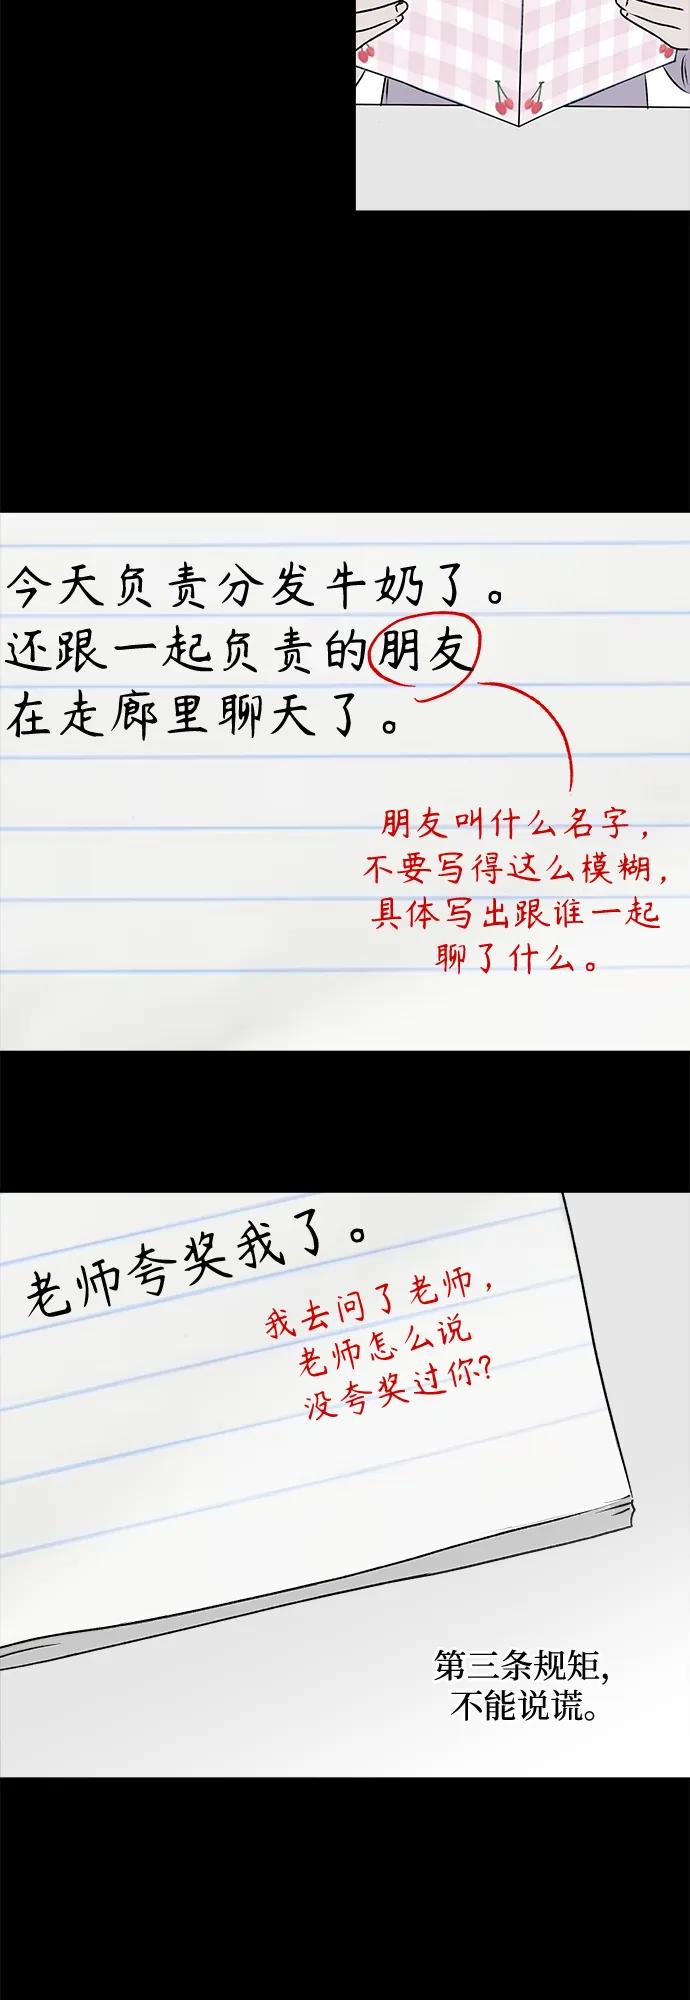 今天负责分发牛奶了。
还跟一起负责的朋友
在走廊里聊天了。
朋友叫什么名字，
不要写得这么模糊，
具体写出跟谁一起
聊了什么。
老师夸奖我了。
我去问了老师，
老师怎么说
没夸奖过你?
第三条规矩,
不能说谎。